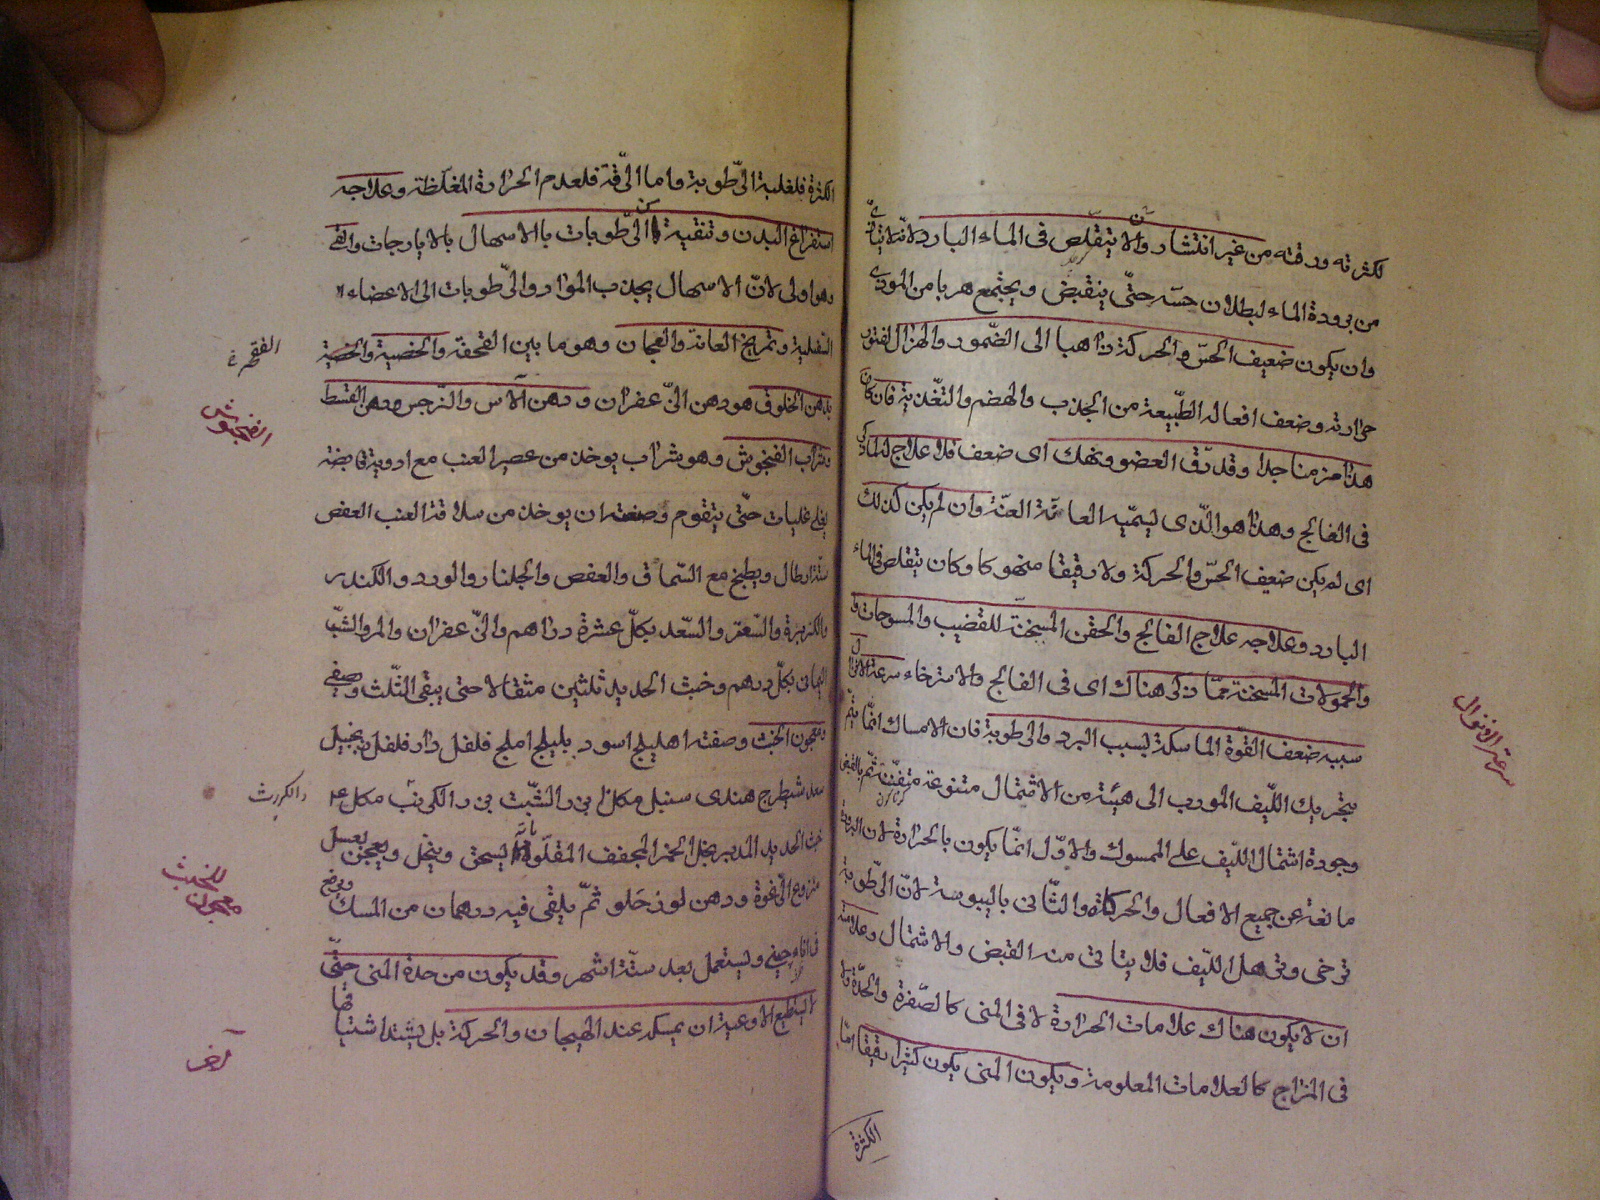 لكثرته ورقته من غير انتشار ولا يتقلص فى الماء البارد
من برودة الماء لبطلان حسه حتّى ينقبض ويجتمع هربا من الموذى
وان يكون ضعيف الحسّ والحركة ذاهبا الى الضّمور والهزال لفتور
حرارته وضعف افعاله الطّبيعة من الجذب والهضم والتغّذية فان كان
هذا مزمنا جدا وقد رّق العضو ونهك اى ضعف فلا علاج له
فى الفالج وهذا هو الّذى ليسمّيه العامّة العنّة وان لم يكن كذلك
اى لم يكن ضعيف الحسّ والحركة ولا رقيقا منهوكا وكان يتقلص فى الماء
البارد وعلاجه علاج الفالج والحقن المسخنة للقضيب والمسوحات
والحمولات المسخنة ممّا ذكر هناك اى فى الفالج والاسترخاء سرعة الانزال
سببه ضعف القوّة الماسكة لبسبب البرد والرطوبة فان الامساك انّما يتمّ
بتحريك اللّيف المورب الى هيئة من الاشتمال متنوعة متفنّنة
وجودة اشتمال اللّيف على الممسوك والاوّل انّما يكون بالحرارة لان البرودة
مانعة عن جميع الافعال والحركات والثّانى باليبوسة لانّ الرّطوبة
ترخى وترهل اللّيف فلا يتاتى منه القبض والاشتمال وعلامته
ان لا يكون هناك علامات الحرارة لا فى المنى كالصّفرة والحدّة ولا
فى المزاج كالعلامات المعلومة ويكون المنى يكون كثيرا رقيقا امّا
الكثرة
سرعة الانزال
الكثرة فلغلبة الرّطوبة واما الرّقة فلعدم الحرارة المغلّظة وعلاجه
استفراغ البدن وتنقيته الرّطوبات بالاسهال بالايارجات والقى
وهو اولى لانّ الاسهال يجذب الموّاد والرّطوبات الى الاعضاء
السّفلية وتمريخ العانة والعجان وهو ما بين الفقحة والخصية والخصية
بدهن الخلوق هو دهن الزّعفران ودهن الآس والنّرجس ودهن القسط
وشراب الفنجوش وهو شراب يوخذ من عصير العنب مع ادوية قابضة
يغلى غليات حتّى يتقوم وصفته ان يوخذ من سلافة العنب العفص
ستّة ارطال ويطبخ مع السّماق والعفص والجلنار والورد والكندر
والكزبرة والسّعتر والسّعد بكلّ عشرة دراهم والزّعفران والمر والشّب
اليمانى بكلّ درهم وخبث الحديد ثلثين مثقالا حتى يبقى الثّلث وصفى
ومعجون الخبث وصفته اهليلج اسود بليلج املج فلفل دار فلفل زنجبيل
سعد شيطرج هندى سنبل مكلّ بزر الشّبت بزر الكرنب مكل
خبث الحديد المدبر بخل الخمر المجفف المقلّو يسحق وينخل ويعجن بعسل
منزوع الرّغوة ودهن لوز حلو ثمّ يلقى فيه درهمان من المسك ويرفع
فى اناء صينى ويستعمل بعد ستّة اشهر وقد يكون من حدة المنى حتّى
لا يستطيع الاوعية ان يمسكه عند الهيجان والحركة بل يشتد اشتياقها
الفقحة
الفنجوش
معجون الخبث
آخر